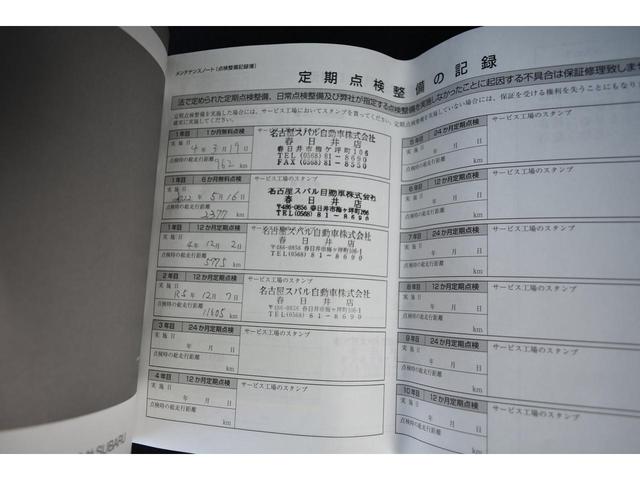 メンテナンスノート(点検整備記録簿)
定期点検整備の記録
法で定められた定期点検整備、日常点検整備及び弊社が指定する点検整備を実施しなかったことに起因する不具合は保証修理致しませ
定期点検整備を実施した場合には、サービス工場においてスタンプを貰ってください。定期点検整備を実施していない場合には、保証を受ける権利を失うことにもなり
確実に実施してください。
1年目 1か月無料点検
実施日
4年3月19日
点検時の総走行距離
962 km
サービス工場のスタンプ
名古屋スバル自動車株式会社
春日井店
春日井市梅ケ坪町106
TEL(0568)81-8690
FAX(0568)81-8550
1年目 6か月無料点検
実施日
2022年5月16日
点検時の総走行距離
2377 km
サービス工場のスタンプ
名古屋スバル自動車株式会社
春日井店
〒486-0856 春日井市梅ケ坪町106
TEL(0568)81-8690
1年目 12か月定期点検
実施日
4年12月2日
点検時の総走行距離
5775 km
サービス工場のスタンプ
名古屋スバル自動車株式会社
春日井店
〒486-0856 春日井市梅ケ坪町106-1
TEL(0568)81-8690
2年目 12か月定期点検
実施日
R5年12月7日
点検時の総走行距離
11805 km
サービス工場のスタンプ
名古屋スバル自動車株式会社
春日井店
〒486-0856 春日井市梅ケ坪町106-1
TEL(0568)81-8690
3年目 24か月定期点検
実施日
年 月 日
点検時の総走行距離
km
サービス工場のスタンプ
4年目 12か月定期点検
実施日
年 月 日
点検時の総走行距離
km
サービス工場のスタンプ
5年目 24か月定期点検
実施日
年 月 日
点検時の総走行距離
km
サービス工場のスタンプ
6年目 12か月定期点検
実施日
年 月 日
点検時の総走行距離
km
サービス工場のスタンプ
7年目 24か月定期点検
実施日
年 月 日
点検時の総走行距離
km
サービス工場のスタンプ
8年目 12か月定期点検
実施日
年 月 日
点検時の総走行距離
km
サービス工場のスタンプ
9年目 24か月定期点検
実施日
年 月 日
点検時の総走行距離
km
サービス工場のスタンプ
10年目 12か月定期点検
実施日
年 月 日
点検時の総走行距離
km
サービス工場のスタンプ
SUBARU